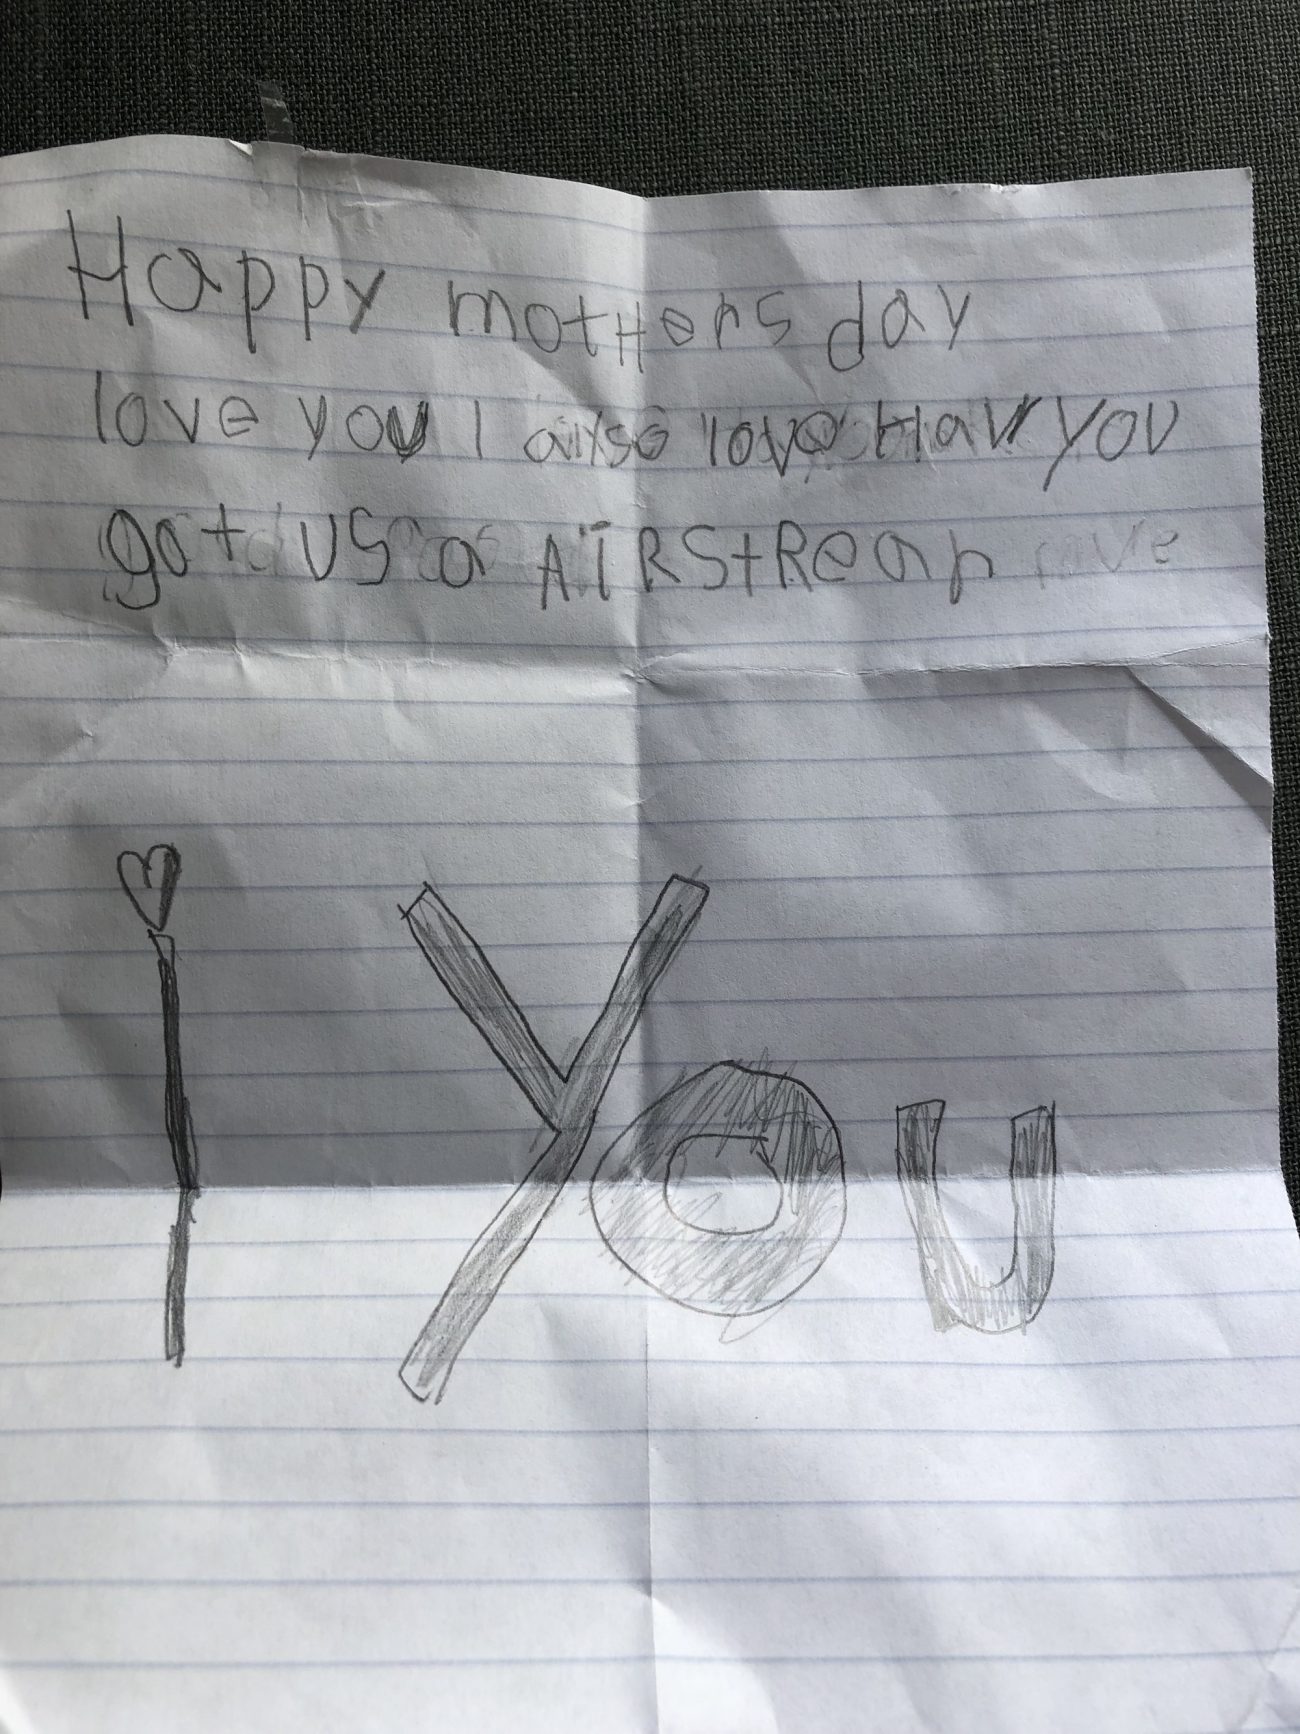 Happy motHers day
love you I also love Haw you
got US a AiRStRean
I You